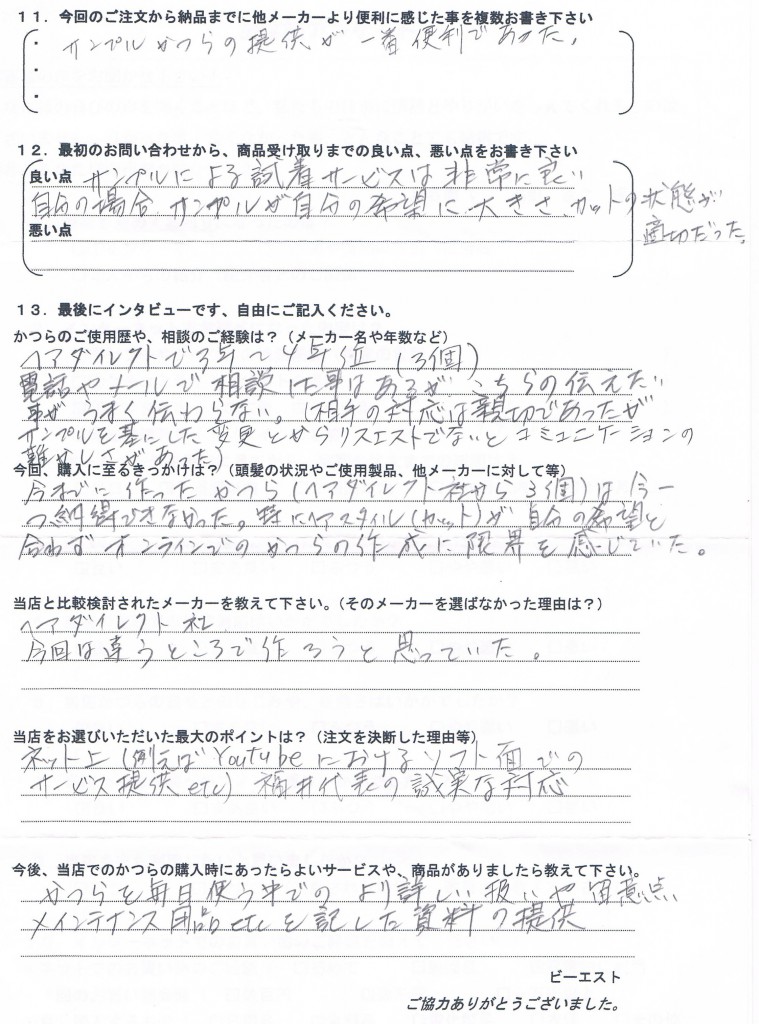 11．今回のご注文から納品までに他メーカーより便利に感じた事を複数お書き下さい
・サンプルかつらの提供が一番便利であった。
・
・
12．最初のお問い合わせから、商品受け取りまでの良い点、悪い点をお書き下さい
良い点 サンプルによる試着サービスは非常に良い
自分の場合、サンプルが自分の希望に、大きさ、カットの状態が
適切だった。
悪い点
13．最後にインタビューです、自由にご記入ください。
かつらのご使用歴や、相談のご経験は？（メーカー名や年数など）
ヘアダイレクトで3年～4年位（3個）
電話やメールで相談した事はあるが、こちらの伝えたい
事がうまく伝わらない。（相手の対応は親切であったが
サンプルを基にした変更とかリクエストでないとコミュニケーションの
難かしさがあった）
今回、購入に至るきっかけは？（頭髪の状況やご使用製品、他メーカーに対して等）
今までに作ったかつら（ヘアダイレクト社から3個）は今一
つ納得できなかった。特にヘアスタイル（カット）が自分の希望と
合わずオンラインでのかつらの作成に限界を感じていた。
当店と比較検討されたメーカーを教えて下さい。（そのメーカーを選ばなかった理由は？）
ヘアダイレクト社
今回は違うところで作ろうと思っていた。
当店をお選びいただいた最大のポイントは？（注文を決断した理由等）
ネット上（例えばYoutubeにおけるソフト面での
サービス提供etc）福井代表の誠実な対応
今後、当店でのかつらの購入時にあったらよいサービスや、商品がありましたら教えて下さい。
かつらを毎日使う中でのより詳しい扱いや留意点、
メインテナンス用品etcを記した資料の提供
ビーエスト
ご協力ありがとうございました。